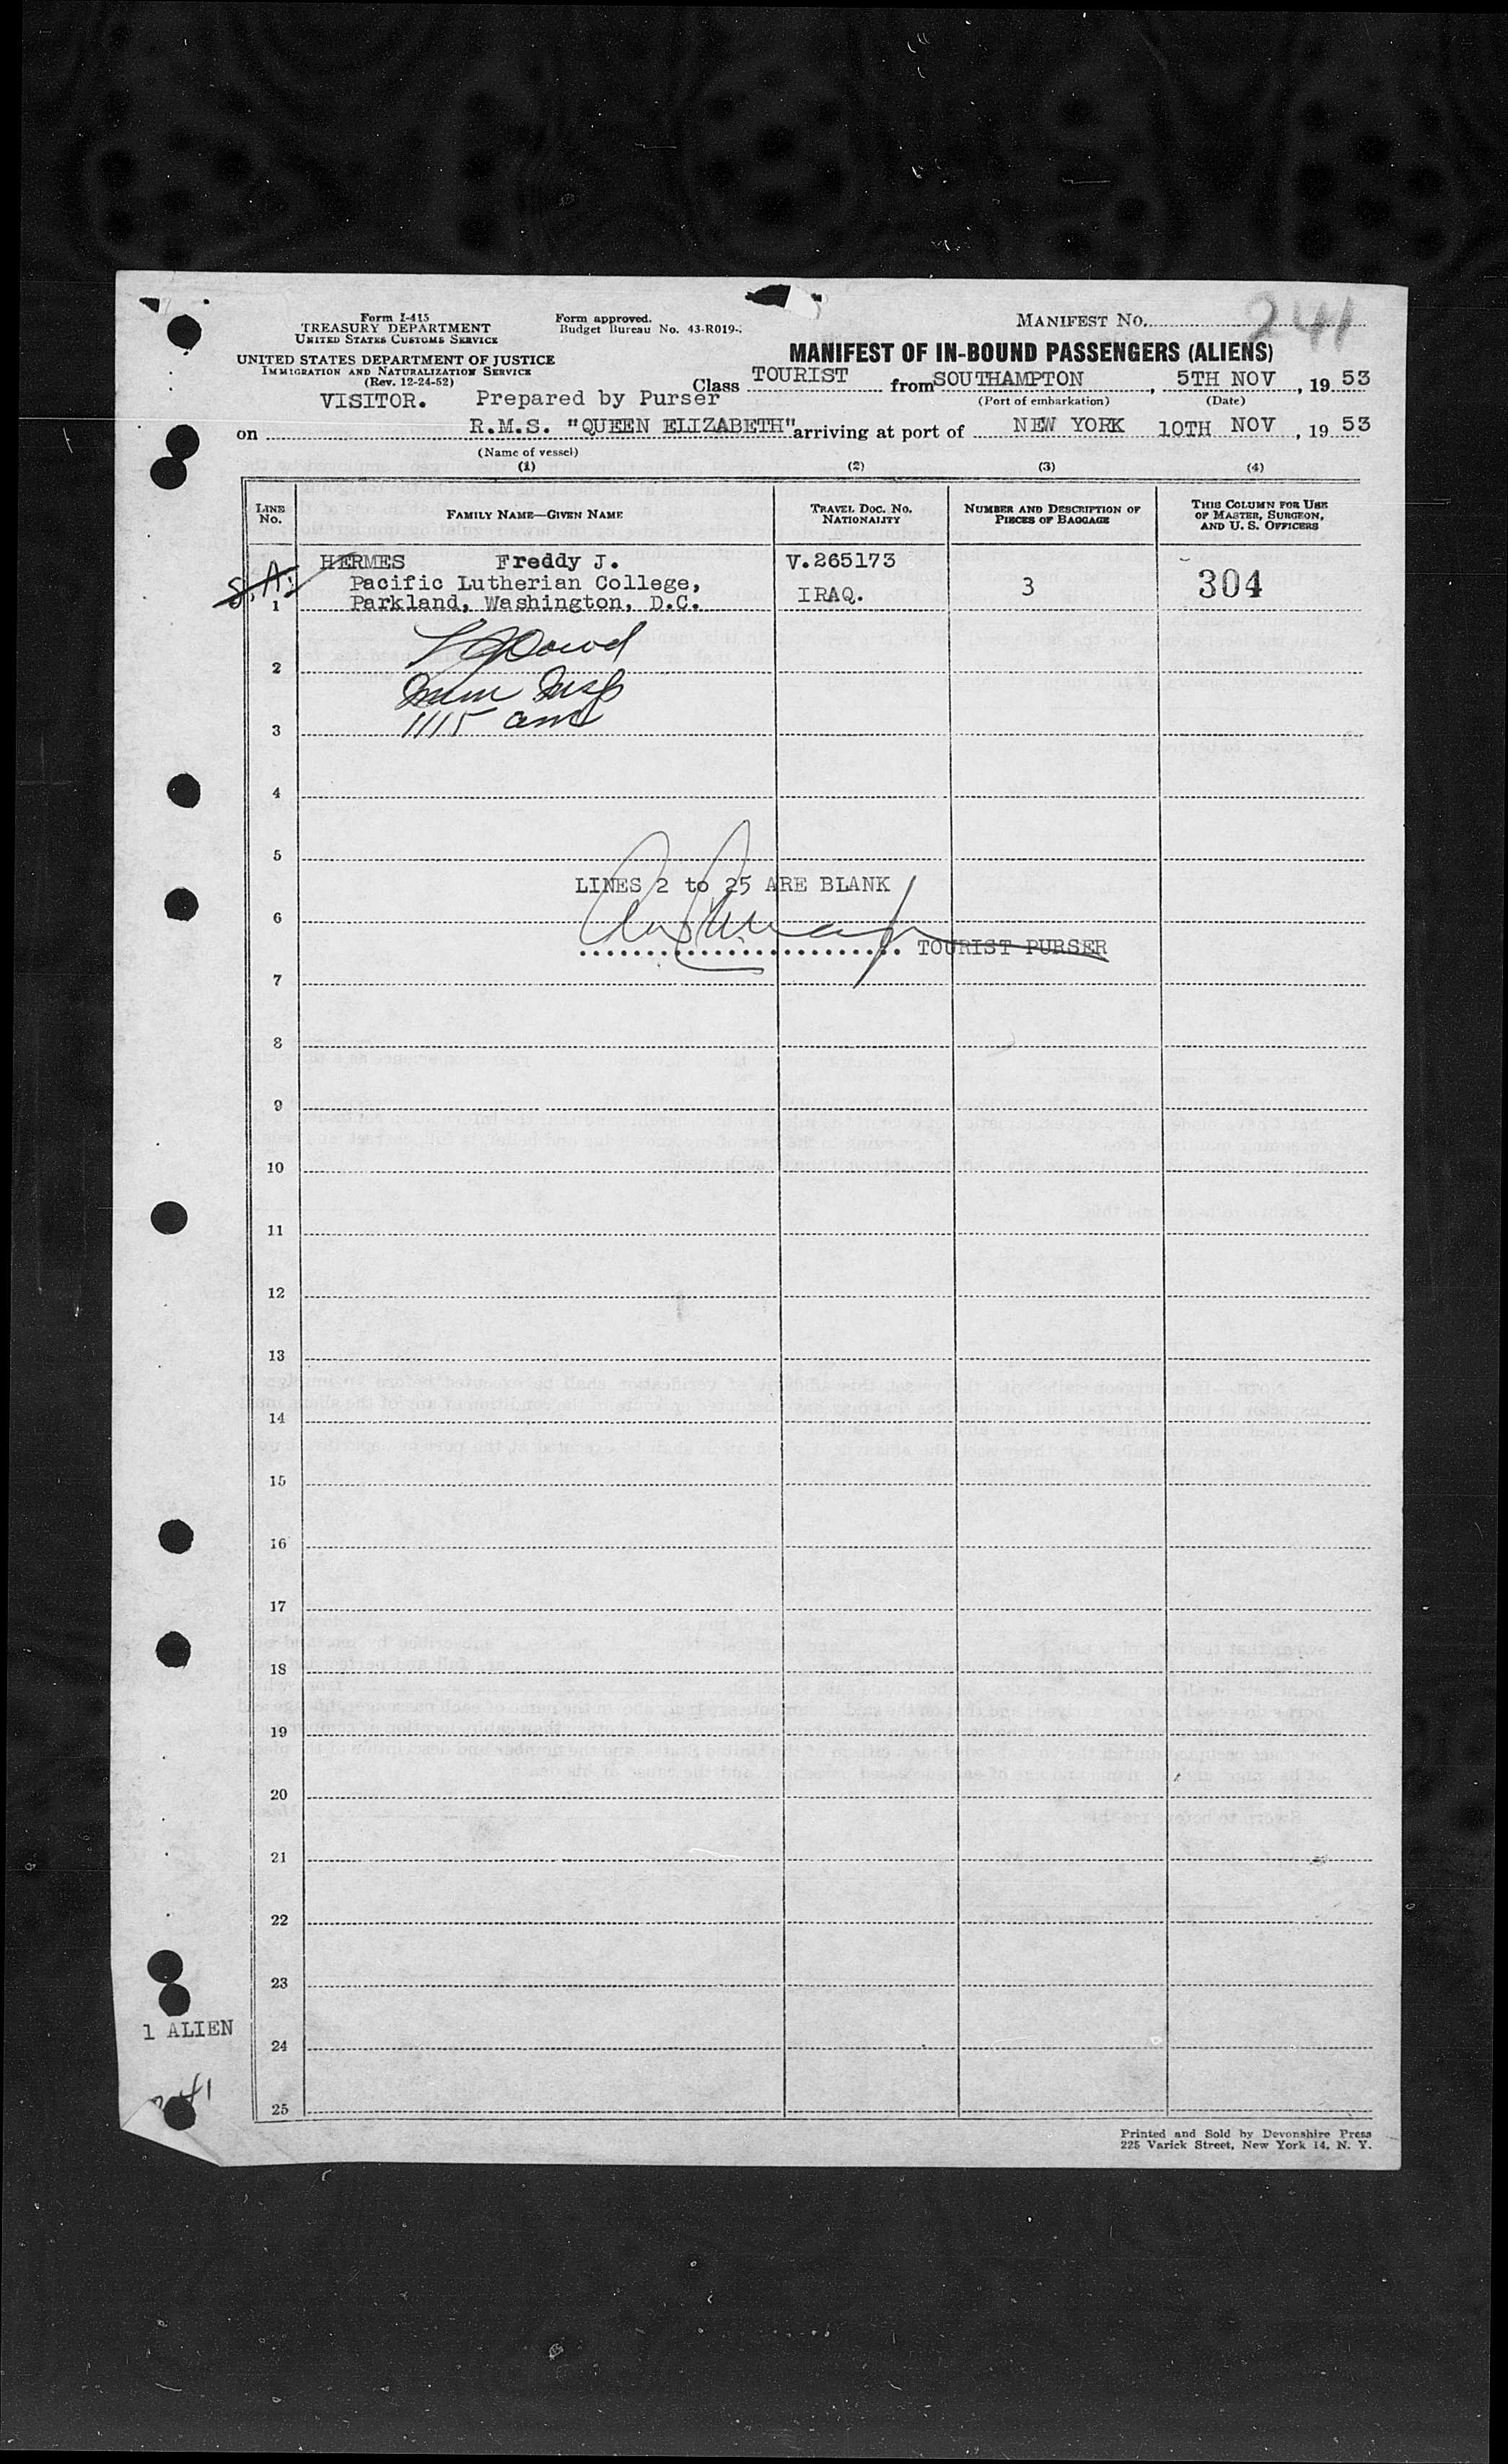 Form I-415
TREASURY DEPARTMENT
UNITED STATES CUSTOMS SERVICE
UNITED STATES DEPARTMENT OF JUSTICE
IMMIGRATION AND NATURALIZATION SERVICE
(Rev. 12-24-52)
Form approved.
Budget Bureau No. 43-R019-
MANIFEST NO. 241
MANIFEST OF IN-BOUND PASSENGERS (ALIENS)
Class TOURIST from SOUTHAMPTON, 5TH NOV, 19 53
(Port of embarkation) (Date)
VISITOR. Prepared by Purser
on R.M.S. "QUEEN ELIZABETH" arriving at port of NEW YORK 10TH NOV, 19 53
(Name of vessel)
(1) (2) (3) (4)
LINE NO. FAMILY NAME—GIVEN NAME TRAVEL DOC. NO. NATIONALITY NUMBER AND DESCRIPTION OF PIECES OF BAGGAGE THIS COLUMN FOR USE OF MASTER, SURGEON, AND U. S. OFFICERS
HERMES Freddy J. V.265173
S.A. Pacific Lutherian College, 3 304
1 Parkland, Washington, D.C. IRAQ.
2
Imm Insp
3 1115 am
4
5
LINES 2 to 25 ARE BLANK
6
TOURIST PURSER
7
8
9
10
11
12
13
14
15
16
17
18
19
20
21
22
23
1 ALIEN
24
25
Printed and Sold by Devonshire Press
225 Varick Street, New York 14, N. Y.